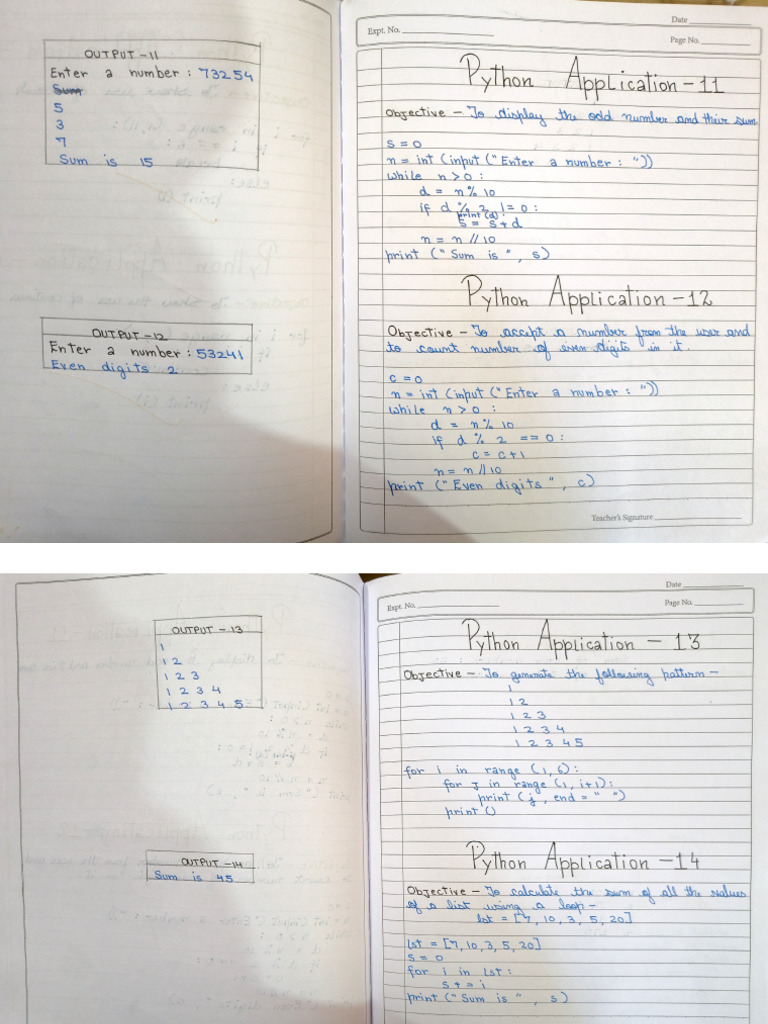 OUTPUT -11
Enter a number : 73254
Sum
5
3
7
Sum is 15
OUTPUT -12
Enter a number : 53241
Even digits 2
Date
Expt. No.
Page No.
Python Application -11
Objective - To display the odd number and their sum
s = 0
n = int (input ("Enter a number : "))
while n > 0 :
d = n % 10
if d % 2 != 0 :
print (d)
s = s + d
n = n // 10
print ("Sum is ", s)
Python Application -12
Objective - To accept a number from the user and
to count number of even digits in it.
c = 0
n = int (input ("Enter a number : "))
while n > 0 :
d = n % 10
if d % 2 == 0 :
c = c + 1
n = n // 10
print ("Even digits ", c)
Teacher's Signature
OUTPUT - 13
1
1 2
1 2 3
1 2 3 4
1 2 3 4 5
OUTPUT -14
Sum is 45
Date
Expt. No.
Page No.
Python Application - 13
Objective - To generate the following pattern -
1
1 2
1 2 3
1 2 3 4
1 2 3 4 5
for i in range (1, 6) :
for j in range (1, i+1) :
print (j, end = " ")
print ()
Python Application -14
Objective - To calculate the sum of all the values
of a list using a loop -
lst = [7, 10, 3, 5, 20]
lst = [7, 10, 3, 5, 20]
s = 0
for i in lst :
s += i
print ("Sum is ", s)